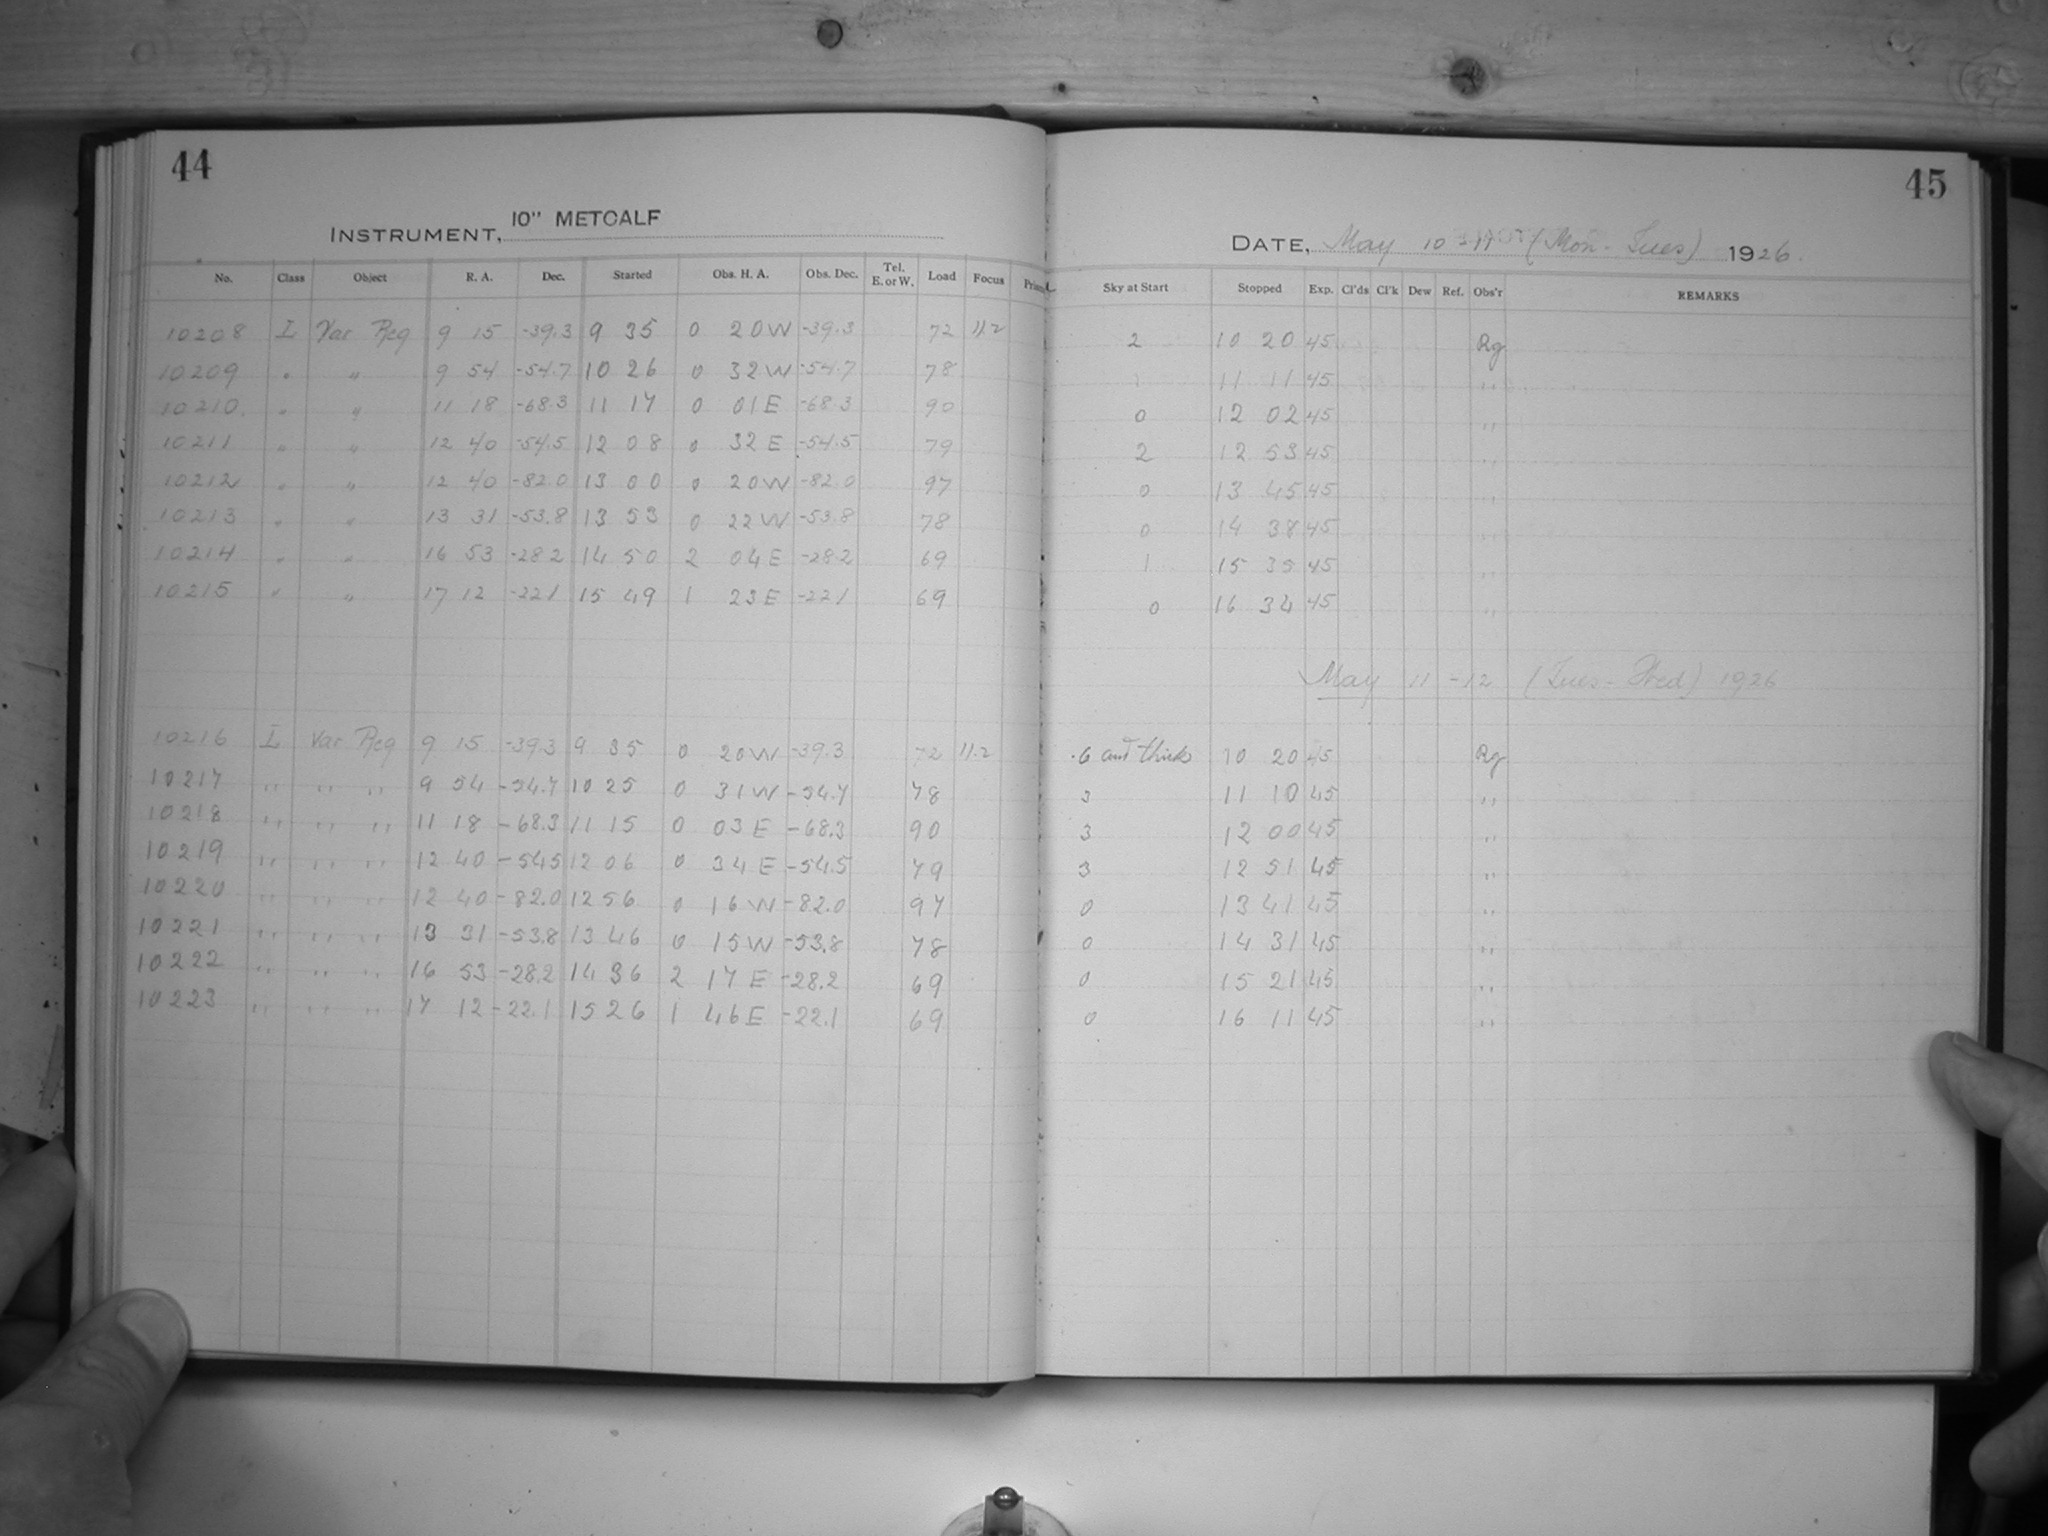 44
INSTRUMENT, 10" METCALF
No. Class Object R. A. Dec. Started Obs. H. A. Obs. Dec. Tel. E. or W. Load Focus
10208 I Var Reg 9 15 -39.3 9 35 0 20W -39.3 72 11.2
10209 " " 9 54 -54.7 10 26 0 32W -54.7 78
10210 " " 11 18 -68.3 11 17 0 01E -68.3 90
10211 " " 12 40 -54.5 12 08 0 32E -54.5 79
10212 " " 12 40 -82.0 13 00 0 20W -82.0 97
10213 " " 13 31 -53.8 13 53 0 22W -53.8 78
10214 " " 16 53 -28.2 14 50 2 04E -28.2 69
10215 " " 17 12 -22.1 15 49 1 23E -22.1 69
10216 I Var Reg 9 15 -39.3 9 35 0 20W -39.3 72 11.2
10217 " " " 9 54 -54.7 10 25 0 31W -54.7 78
10218 " " " 11 18 -68.3 11 15 0 03E -68.3 90
10219 " " " 12 40 -54.5 12 06 0 34E -54.5 79
10220 " " " 12 40 -82.0 12 56 0 16W -82.0 97
10221 " " " 13 31 -53.8 13 46 0 15W -53.8 78
10222 " " " 16 53 -28.2 14 36 2 17E -28.2 69
10223 " " " 17 12 -22.1 15 26 1 46E -22.1 69
45
DATE, May 10-11 (Mon-Tues) 1926.
Sky at Start Stopped Exp. Cl'ds Cl'k Dew Ref. Obs'r REMARKS
2 10 20 45 Rg
1 11 11 45 "
0 12 02 45 "
2 12 53 45 "
0 13 45 45 "
0 14 38 45 "
1 15 35 45 "
0 16 34 45 "
May 11-12 (Tues-Wed) 1926
.6 and thick 10 20 45 Rg
3 11 10 45 "
3 12 00 45 "
3 12 51 45 "
0 13 41 45 "
0 14 31 45 "
0 15 21 45 "
0 16 11 45 "